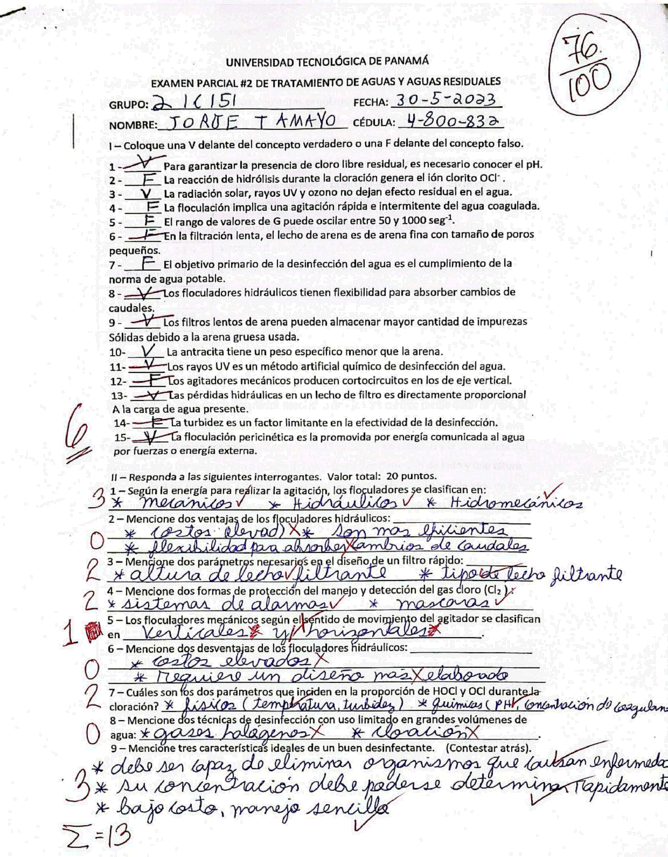 76
100
UNIVERSIDAD TECNOLÓGICA DE PANAMÁ
EXAMEN PARCIAL #2 DE TRATAMIENTO DE AGUAS Y AGUAS RESIDUALES
GRUPO: 21C151 FECHA: 30-5-2023
NOMBRE: JORGE TAMAYO CÉDULA: 4-800-832
I – Coloque una V delante del concepto verdadero o una F delante del concepto falso.
1 - V Para garantizar la presencia de cloro libre residual, es necesario conocer el pH.
2 - F La reacción de hidrólisis durante la cloración genera el ión clorito OCl⁻ .
3 - V La radiación solar, rayos UV y ozono no dejan efecto residual en el agua.
4 - F La floculación implica una agitación rápida e intermitente del agua coagulada.
5 - F El rango de valores de G puede oscilar entre 50 y 1000 seg⁻¹.
6 - F En la filtración lenta, el lecho de arena es de arena fina con tamaño de poros
pequeños.
7 - F El objetivo primario de la desinfección del agua es el cumplimiento de la
norma de agua potable.
8 - V Los floculadores hidráulicos tienen flexibilidad para absorber cambios de
caudales.
9 - V Los filtros lentos de arena pueden almacenar mayor cantidad de impurezas
Sólidas debido a la arena gruesa usada.
10- V La antracita tiene un peso específico menor que la arena.
11- V Los rayos UV es un método artificial químico de desinfección del agua.
12- F Los agitadores mecánicos producen cortocircuitos en los de eje vertical.
13- V Las pérdidas hidráulicas en un lecho de filtro es directamente proporcional
A la carga de agua presente.
14- F La turbidez es un factor limitante en la efectividad de la desinfección.
15- V La floculación pericinética es la promovida por energía comunicada al agua
por fuerzas o energía externa.
6
II – Responda a las siguientes interrogantes. Valor total: 20 puntos.
1 – Según la energía para realizar la agitación, los floculadores se clasifican en:
3 * mecánicos * Hidráulicos * Hidromecánicos
2 – Mencione dos ventajas de los floculadores hidráulicos:
* costos elevad) * son mas eficientes
0 * flexibilidad para absorber cambrios de caudales
3 – Mencione dos parámetros necesarios en el diseño de un filtro rápido:
2 * altura de lecho filtrante * tipo de lecho filtrante
4 – Mencione dos formas de protección del manejo y detección del gas cloro (Cl₂ ):
2 * sistemas de alarmas * mascaras
5 – Los floculadores mecánicos según el sentido de movimiento del agitador se clasifican
1 en verticales y horizontales .
6 – Mencione dos desventajas de los floculadores hidráulicos:
* costos elevados
0 * Requiere un diseño mas elaborado
7 – Cuáles son los dos parámetros que inciden en la proporción de HOCl y OCl durante la
2 cloración? * fisicos (temperatura, turbidez) * quimicos (PH, concentracion de coagulan
8 – Mencione dos técnicas de desinfección con uso limitado en grandes volúmenes de
0 agua: * gases halogenos * cloración
9 – Mencione tres características ideales de un buen desinfectante. (Contestar atrás).
* debe ser capaz de eliminar organismos que causan enfermeda
3 * su concentración debe poderse determinar rapidamente
* bajo costo, manejo sencillo
Σ = 13